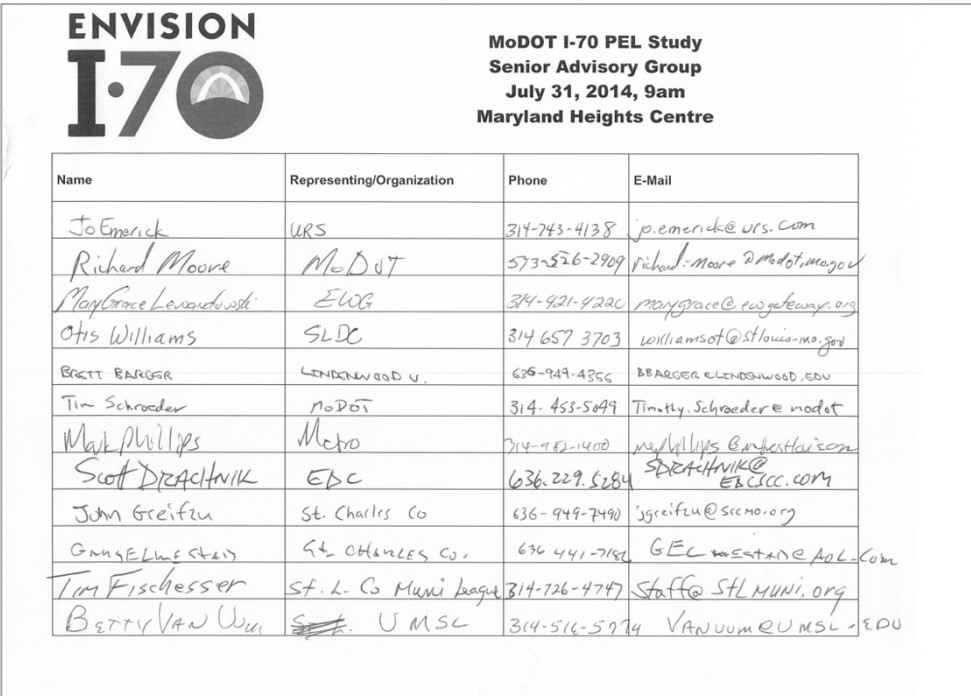 ENVISION
I-70
MoDOT I-70 PEL Study
Senior Advisory Group
July 31, 2014, 9am
Maryland Heights Centre
Name Representing/Organization Phone E-Mail
Jo Emerick URS 314-743-4138 jo.emerick@urs.com
Richard Moore MoDOT 573-526-2909 richard.moore@modot.mo.gov
MaryGrace Lewandowski EWG 314-421-4220 marygrace@ewgateway.org
Otis Williams SLDC 314 657 3703 williamsot@stlouis-mo.gov
BRETT BARGER LINDENWOOD U. 636-949-4366 BBARGER@LINDENWOOD.EDU
Tim Schroeder MoDOT 314-453-5049 Timothy.Schroeder@modot
Mark Phillips Metro 314-982-1400
Scott DRACHNIK EDC 636.229.5284 SDRACHNIK@
EDCSCC.COM
John Greifzu St. Charles Co 636-949-7490 jgreifzu@sccmo.org
St. CHARLES Co. 636 441-
Tim Fischesser St. L. Co Muni League 314-726-4747 Staff@STLMUNI.org
BETTY VAN UUM UMSL 314-516-5774 VANUUM@UMSL.EDU